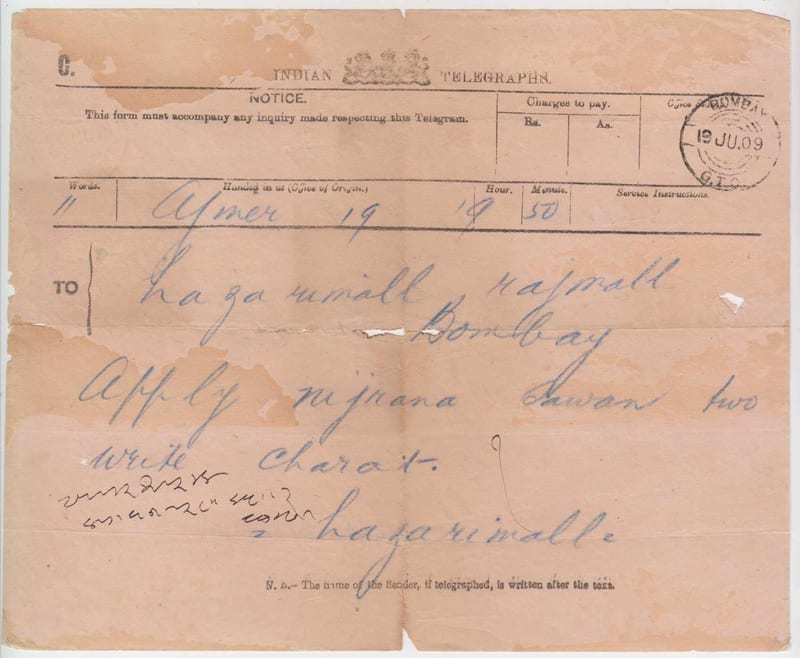 C.
INDIAN TELEGRAPHS.
NOTICE.
This form must accompany any inquiry made respecting this Telegram.
Charges to pay.
Rs. As.
Office
BOMBAY
19 JU.09
G.T.O.
Words. Handed in at (Office of Origin.) Hour. Minute. Service Instructions.
11 Ajmer 19 19 50
TO
hazarimall rajmall
Bombay
Apply nijrana Sawan two
write charat.
= hazarimall =
N. B.- The name of the Sender, if telegraphed, is written after the text.